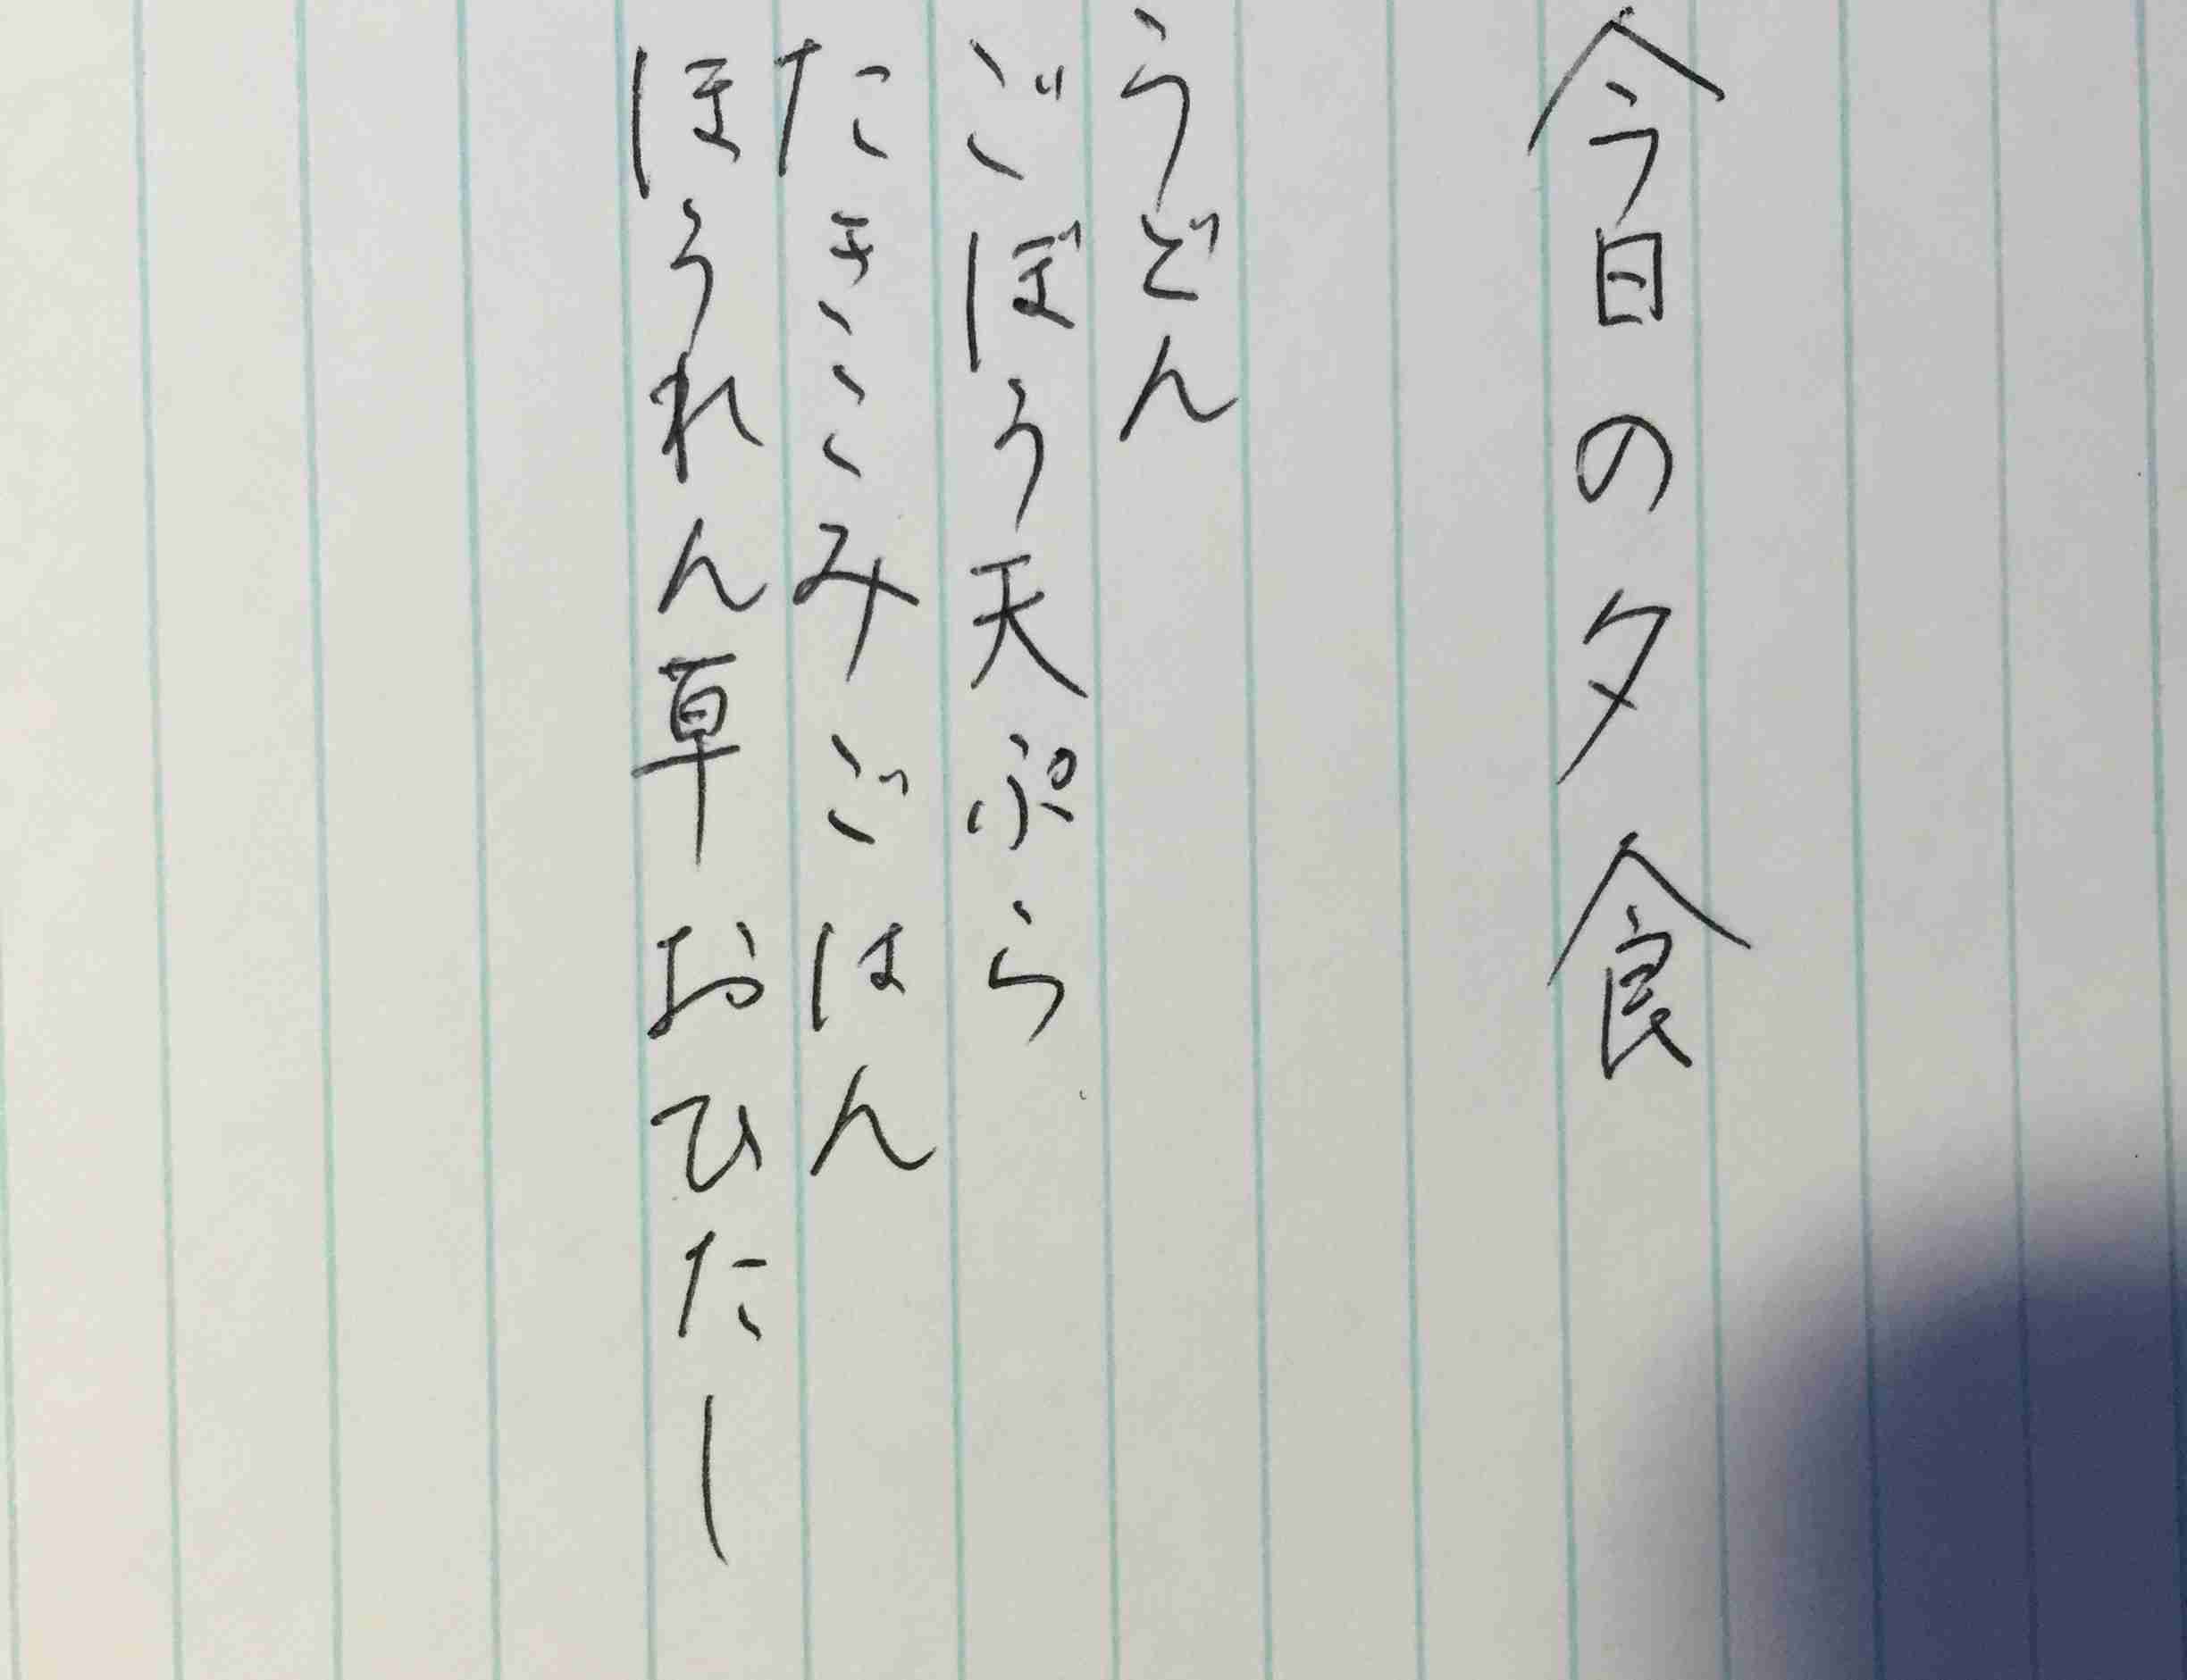 今日の夕食
うどん
ごぼう天ぷら
たきこみごはん
ほうれん草おひたし